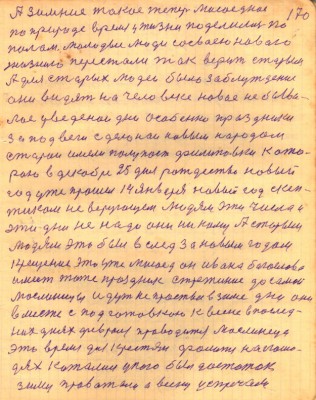 170
А зимние такое тепер Мясоедное
по природе время у жизни поделились по
полам. Молодые люди со своего нового
жизнию перестали так верит старым
А для старых людей было заблуждение
они видят на человеке новое не быва
лое уведеной дни особенно праздники
За подвеги сделоные новым народом
старые имели полупост филиповки кото
рою в декабре 25 дня рождество новый
год уже прошел 14 января новый год
не верующем людям эти числа и
эти дни не надо они никому А старым
людям это был вслед за новым годом
крещение это уже мясоед он ивана богослова
имеет тоже праздник стретение до самой
Мослиницы идут не простые взиме дни они
вместе с подготовкою к весне в послед
них днях февроля проводится Маслинеца
это время для крестян
дях катали у кого был достаток
зиму провожали а весну устречали